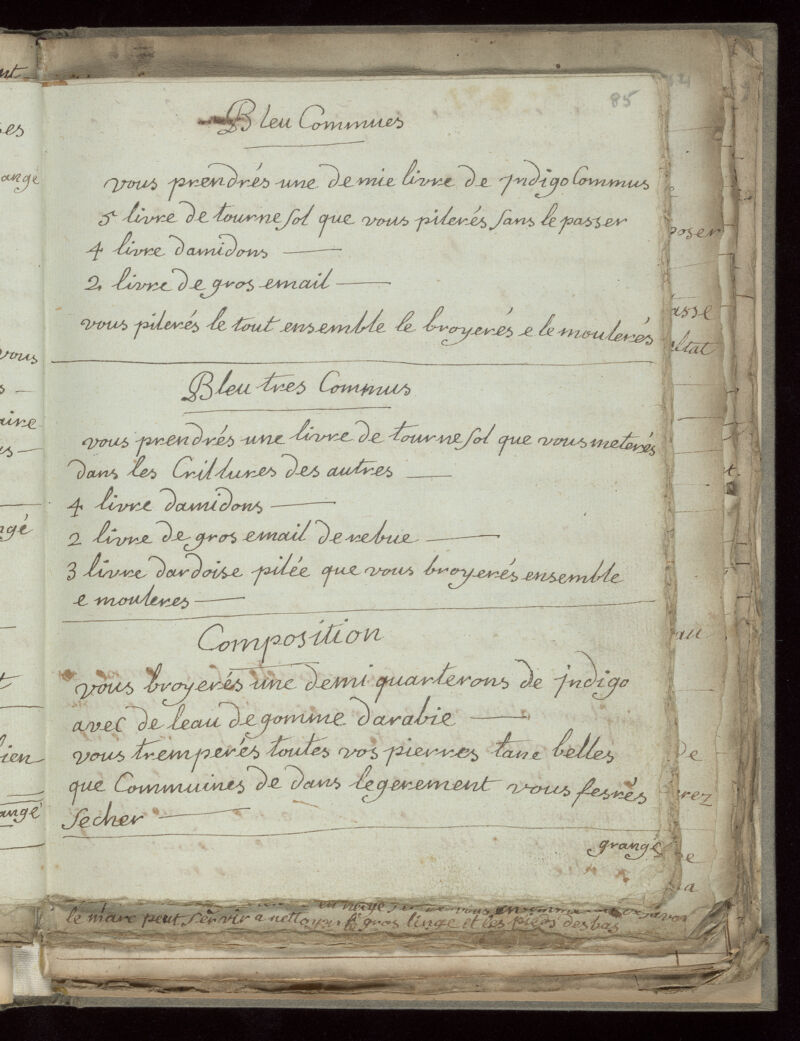 85
Bleu Commues
vous prendrés une demie livre de jndigo Commus
5 livre de tournesol que vous pilerés sans le passer
4 livre damidons
2 livre de gros email
vous pilerés le tout ensemble le broyerés e le moulerés
Bleu tres Commus
vous prendrés une livre de tournesol que vous meterés
dans les Crillures des autres
4 livre damidons
2 livre de gros email de rebue
3 livre dardoise pilée que vous broyerés ensemble
e mouleres
Composition
vous broyerés une demi quarterons de jndigo
avec de leau de gomme darabie
vous tremperés toutes vos pierres tane belles
que Commuines de dans legerement vous fesrés
secher
grangé
le marc peut servir a nettoyer le gros linge et les pieds des bas